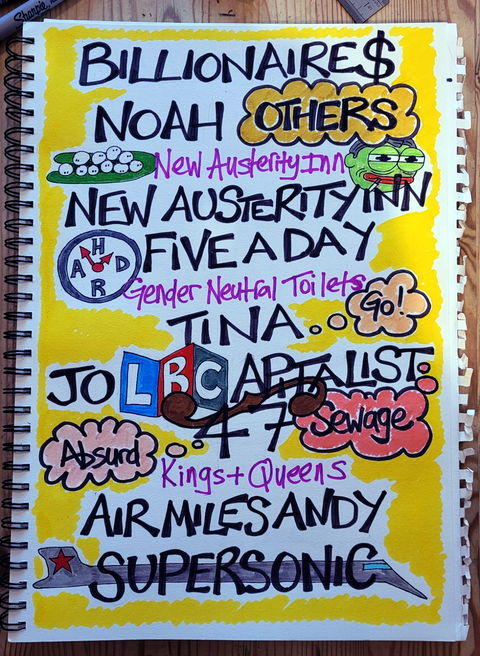 Sharpie
BILLIONAIRE$
NOAH OTHERS
New Austerity Inn
NEW AUSTERITY INN
HARD FIVE A DAY
Gender Neutral Toilets
TINA.. Go!
JO LBC APTALIST.
47 Sewage
Absurd
Kings + Queens
AIR MILES ANDY
SUPERSONIC